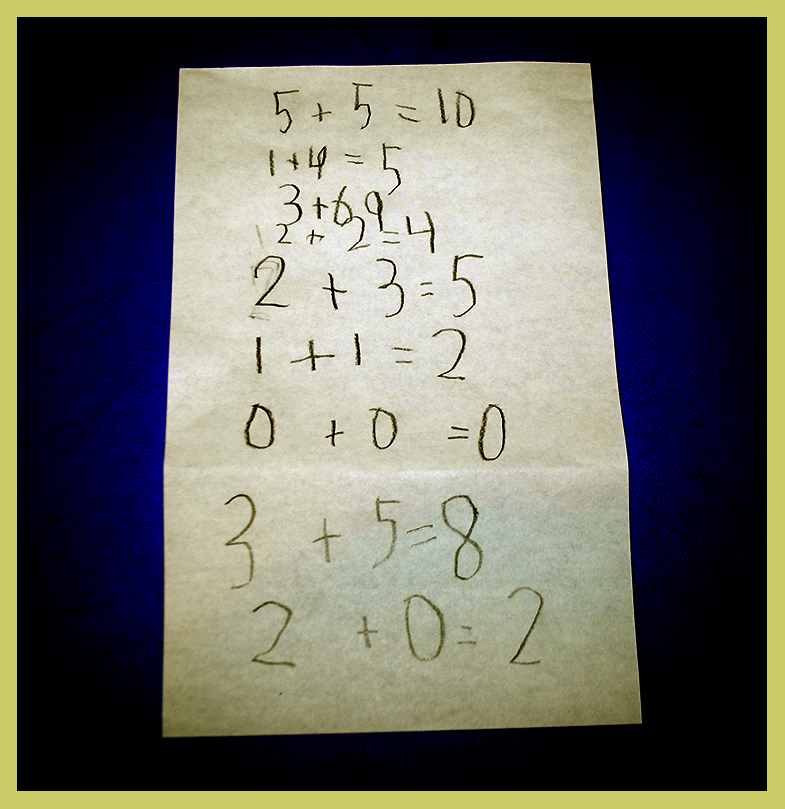 5 + 5 = 10
1 + 4 = 5
3 + 6 9
2 + 2 = 4
2 + 3 = 5
1 + 1 = 2
0 + 0 = 0
3 + 5 = 8
2 + 0 = 2